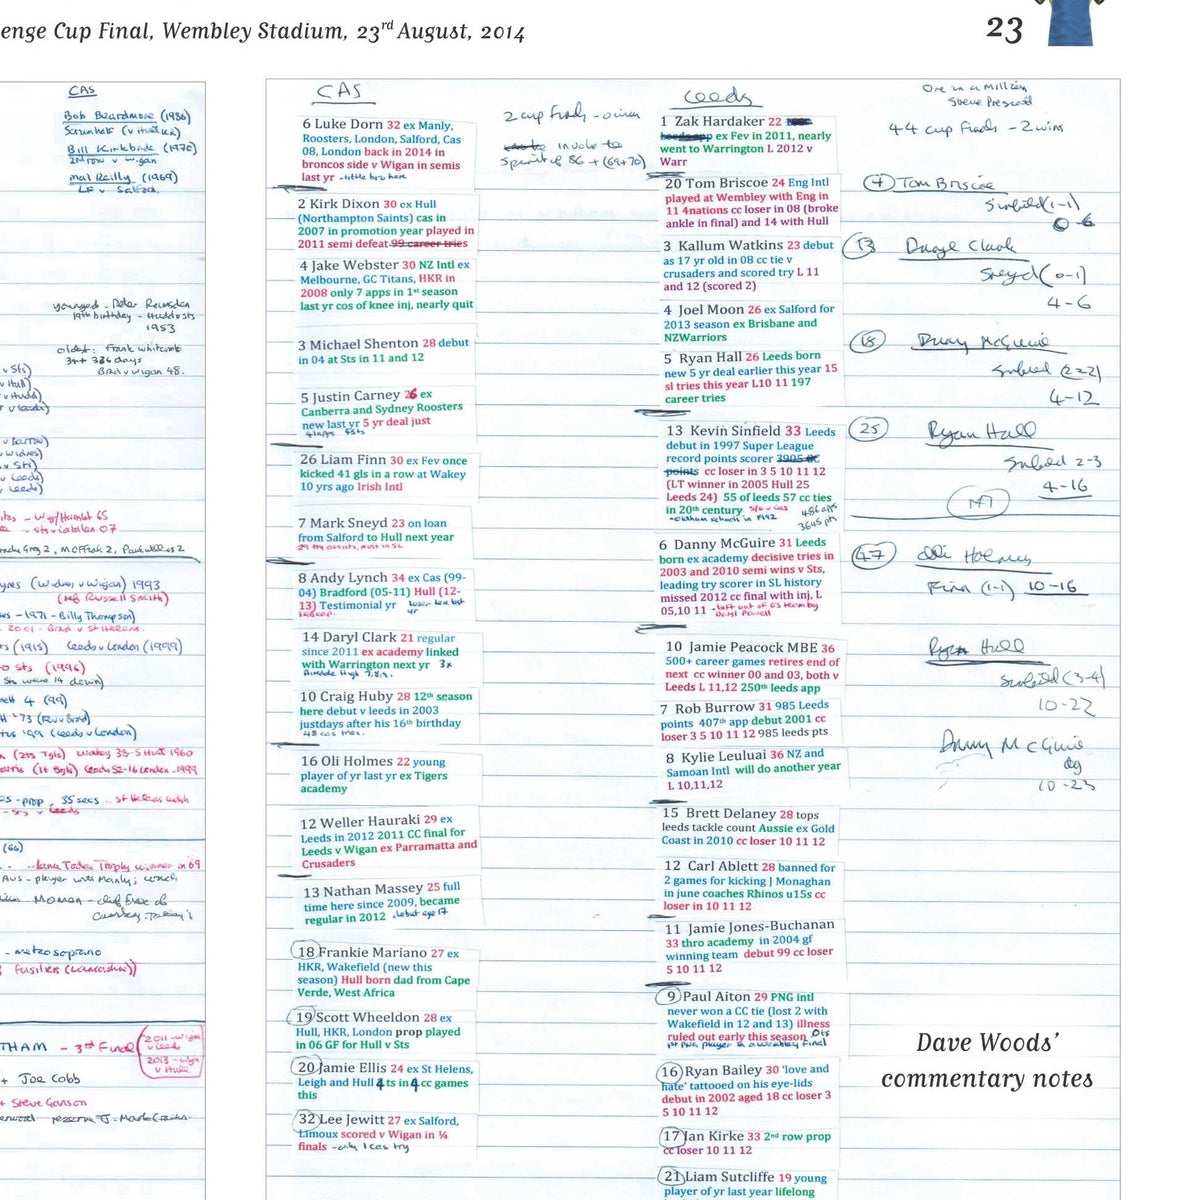 enge Cup Final, Wembley Stadium, 23rd August, 2014
23
CAS
Bob Beardmore (1986)
Scrum half (v Hull KR)
Bill Kirkbride (1970)
2nd row v Wigan
Mal Reilly (1969)
LF v Salford
youngest - Peter Ramsden
19th birthday - Hudd v Sts
1953
oldest: Frank Whitcombe
34 + 336 days
Brad v Wigan 48.
v Sts)
v Hull)
v Hudd)
v Leeds)
v Barrow)
v Widnes)
v Sts)
v Leeds)
v Leeds)
(Widnes v Wigan) 1993
(Hq Russell Smith)
- 1971 - Billy Thompson)
2001 - Brad v St Helens.
(1915) Leeds v London (1999)
o Sts (1996)
Sts were 14 down)
4 (99)
'73 (Fev v Brad)
'99 (Leeds v London)
Wakey 38-5 Hull 1960
Leeds 52-16 London - 1999
- prop, 35 secs
- 53 v Leeds
(66)
- Lance Todd Trophy winner in 69
Aus - player with Manly; coach
- mezzo soprano
Fusiliers (Lancashire))
THAM - 3rd Final
2011 - Wigan
v Leeds
2013 - Wigan
v Hull
+ Joe Cobb
+ Steve Ganson
CAS
2 cup finals - 0 win
invoke the
spirit of 86 + (69+70)
6 Luke Dorn 32 ex Manly,
Roosters, London, Salford, Cas
08, London back in 2014 in
broncos side v Wigan in semis
last yr - little bro here
2 Kirk Dixon 30 ex Hull
(Northampton Saints) cas in
2007 in promotion year played in
2011 semi defeat 99 career tries
4 Jake Webster 30 NZ Intl ex
Melbourne, GC Titans, HKR in
2008 only 7 apps in 1st season
last yr cos of knee inj, nearly quit
3 Michael Shenton 28 debut
in 04 at Sts in 11 and 12
5 Justin Carney 26 ex
Canberra and Sydney Roosters
new last yr 5 yr deal just
26 Liam Finn 30 ex Fev once
kicked 41 gls in a row at Wakey
10 yrs ago Irish Intl
7 Mark Sneyd 23 on loan
from Salford to Hull next year
29 try assists, most in SL
8 Andy Lynch 34 ex Cas (99-
04) Bradford (05-11) Hull (12-
13) Testimonial yr loser here last
yr
14 Daryl Clark 21 regular
since 2011 ex academy linked
with Warrington next yr 3x
Airedale High 7,8,9.
10 Craig Huby 28 12th season
here debut v leeds in 2003
justdays after his 16th birthday
48 cas tries.
16 Oli Holmes 22 young
player of yr last yr ex Tigers
academy
12 Weller Hauraki 29 ex
Leeds in 2012 2011 CC final for
Leeds v Wigan ex Parramatta and
Crusaders
13 Nathan Massey 25 full
time here since 2009, became
regular in 2012 debut age 17
18 Frankie Mariano 27 ex
HKR, Wakefield (new this
season) Hull born dad from Cape
Verde, West Africa
19 Scott Wheeldon 28 ex
Hull, HKR, London prop played
in 06 GF for Hull v Sts
20 Jamie Ellis 24 ex St Helens,
Leigh and Hull 4 ts in 4 cc games
this
32 Lee Jewitt 27 ex Salford,
Limoux scored v Wigan in ¼
finals - only 1 cas try
Leeds
1 Zak Hardaker 22
leeds app ex Fev in 2011, nearly
went to Warrington L 2012 v
Warr
20 Tom Briscoe 24 Eng Intl
played at Wembley with Eng in
11 4nations cc loser in 08 (broke
ankle in final) and 14 with Hull
3 Kallum Watkins 23 debut
as 17 yr old in 08 cc tie v
crusaders and scored try L 11
and 12 (scored 2)
4 Joel Moon 26 ex Salford for
2013 season ex Brisbane and
NZWarriors
5 Ryan Hall 26 Leeds born
new 5 yr deal earlier this year 15
sl tries this year L10 11 197
career tries
13 Kevin Sinfield 33 Leeds
debut in 1997 Super League
record points scorer 3905 CC
points cc loser in 3 5 10 11 12
(LT winner in 2005 Hull 25
Leeds 24) 55 of leeds 57 cc ties
in 20th century
486 apps
3645 pts
6 Danny McGuire 31 Leeds
born ex academy decisive tries in
2003 and 2010 semi wins v Sts,
leading try scorer in SL history
missed 2012 cc final with inj, L
05,10 11 - left out of 03 team by
Daryl Powell
10 Jamie Peacock MBE 36
500+ career games retires end of
next cc winner 00 and 03, both v
Leeds L 11,12 250th leeds app
7 Rob Burrow 31 985 Leeds
points 407th app debut 2001 cc
loser 3 5 10 11 12 985 leeds pts
8 Kylie Leuluai 36 NZ and
Samoan Intl will do another year
L 10,11,12
15 Brett Delaney 28 tops
leeds tackle count Aussie ex Gold
Coast in 2010 cc loser 10 11 12
12 Carl Ablett 28 banned for
2 games for kicking J Monaghan
in june coaches Rhinos u15s cc
loser in 10 11 12
11 Jamie Jones-Buchanan
33 thro academy in 2004 gf
winning team debut 99 cc loser
5 10 11 12
9 Paul Aiton 29 PNG intl
never won a CC tie (lost 2 with
Wakefield in 12 and 13) illness
ruled out early this season
1st PNG player in a Wembley Final
16 Ryan Bailey 30 'love and
hate' tattooed on his eye-lids
debut in 2002 aged 18 cc loser 3
5 10 11 12
17 Ian Kirke 33 2nd row prop
cc loser 10 11 12
21 Liam Sutcliffe 19 young
player of yr last year lifelong
One in a Million
Steve Prescott
44 cup finals - 2 wins
4 Tom Briscoe
Sinfield (1-1)
0-6
13 Daryl Clark
Sneyd (0-1)
4-6
18 Danny McGuire
Sinfield (2-2)
4-12
25 Ryan Hall
Sinfield 2-3
4-16
HT
47 Oli Holmes
Finn (1-1) 10-16
Ryan Hall
Sinfield (3-4)
10-22
Danny McGuire
dg
10-23
Dave Woods'
commentary notes